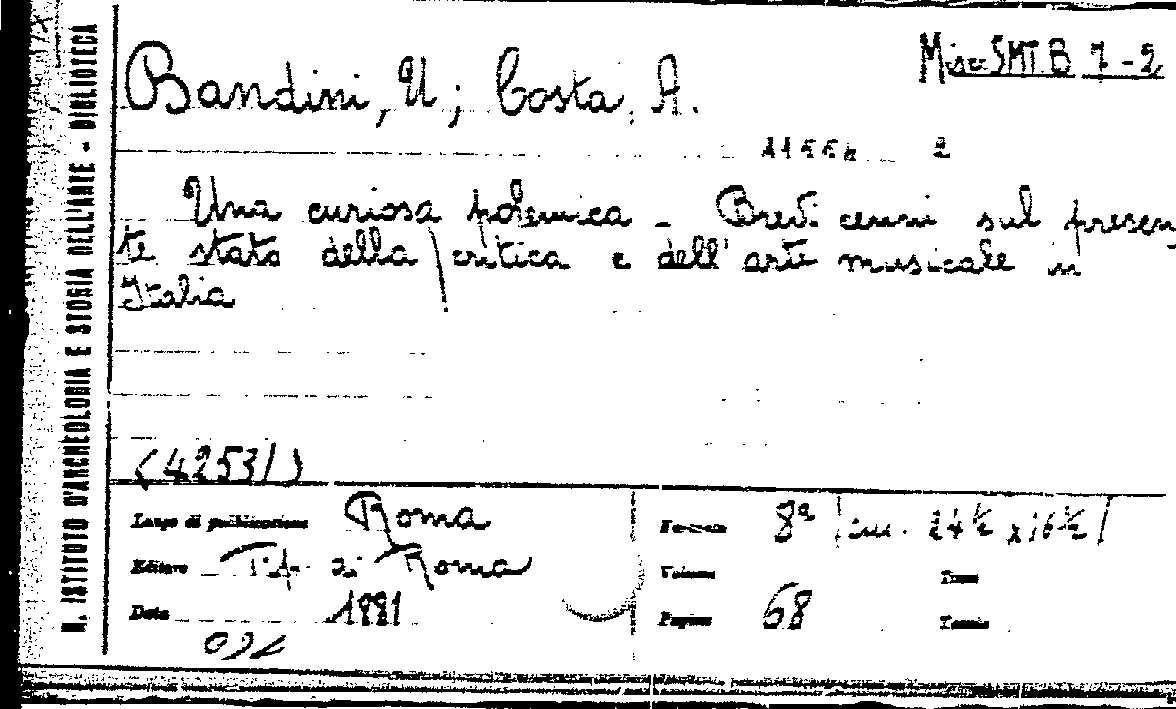 R. ISTITUTO D'ARCHEOLOGIA E STORIA DELL'ARTE - BIBLIOTECA
Misc. SMT. B 7-2
Bandini, U; Costa, A.
2
Una curiosa polemica - Brevi cenni sul presen
te stato della critica e dell'arte musicale in
Italia
(42531)
Luogo di pubblicazione Roma
Editore Tip. di Roma
Data 1881
Formato 8° cm. 24½ x 16½
Volume Tomo
Pagine 68 Tavole